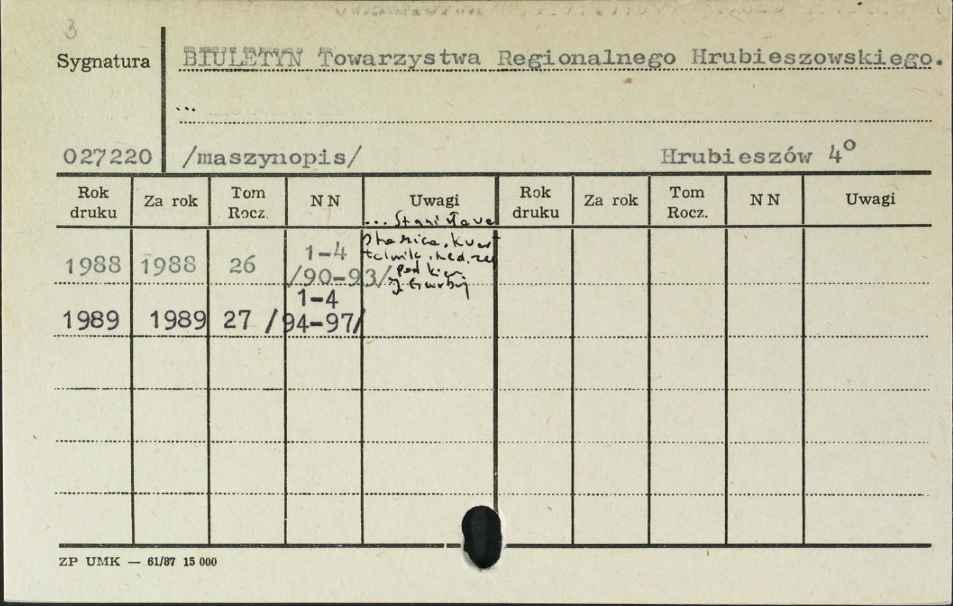 3
Sygnatura
BIULETYN Towarzystwa Regionalnego Hrubieszowskiego.
...
027220 /maszynopis/ Hrubieszów 4°
Rok druku Za rok Tom Rocz. N N Uwagi Rok druku Za rok Tom Rocz. N N Uwagi
... Stanisława
Staszica. Kwar
talnik. Red. ze
1988 1988 26 1-4 /90-93/ pod kier.
J.
1989 1989 27 1-4 /94-97/
ZP UMK — 61/87 15 000